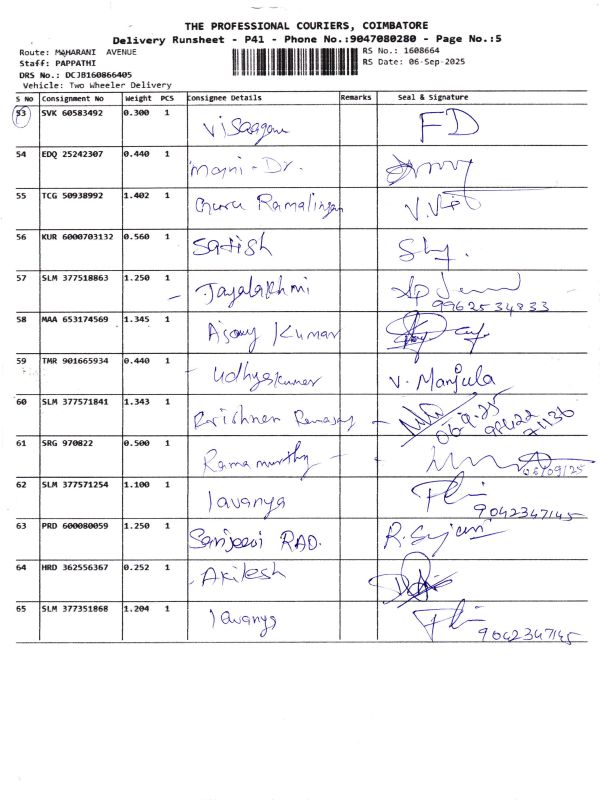 THE PROFESSIONAL COURIERS, COIMBATORE
Delivery Runsheet - P41 - Phone No.:9047080280 - Page No.:5
Route: MAHARANI AVENUE
RS No.: 1608664
Staff: PAPPATHI
RS Date: 06-Sep-2025
DRS No.: DCJB160866405
Vehicle: Two Wheeler Delivery
S No Consignment No Weight PCS Consignee Details Remarks Seal & Signature
53 SVK 60583492 0.300 1 Visaagan FD
54 EDQ 25242307 0.440 1 mani - Dr.
55 TCG 50938992 1.402 1 Guru Ramalingam
56 KUR 6000703132 0.560 1 Satish
57 SLM 377518863 1.250 1 Jayalakhmi
9962534833
58 MAA 653174569 1.345 1 Kumar
59 TMR 901665934 0.440 1 Udhyakumar V. Manjula
60 SLM 377571841 1.343 1 06.9.25
61 SRG 970822 0.500 1 Ramamurthy 06/09/25
62 SLM 377571254 1.100 1 lavanya
9042347145
63 PRD 600080059 1.250 1 Sanjeevi RAO.
64 HRD 362556367 0.252 1 Akilesh
65 SLM 377351868 1.204 1 lavanya
9042347145